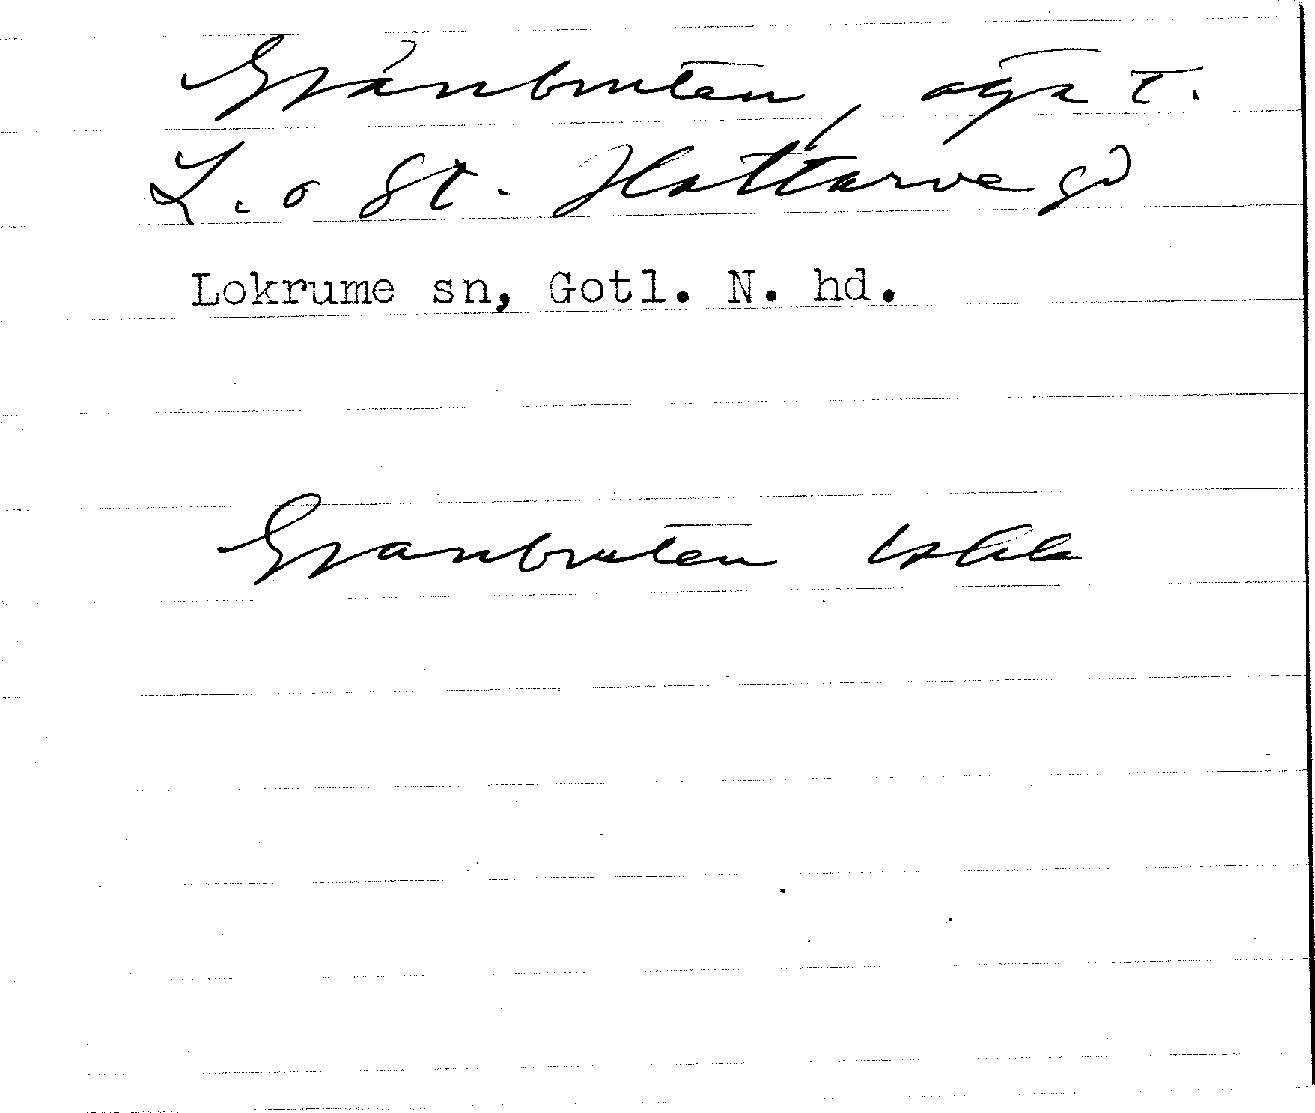 Granbruten, äga t.
L. o St. Hattarve gd
Lokrume sn, Gotl. N. hd.
Granbruten